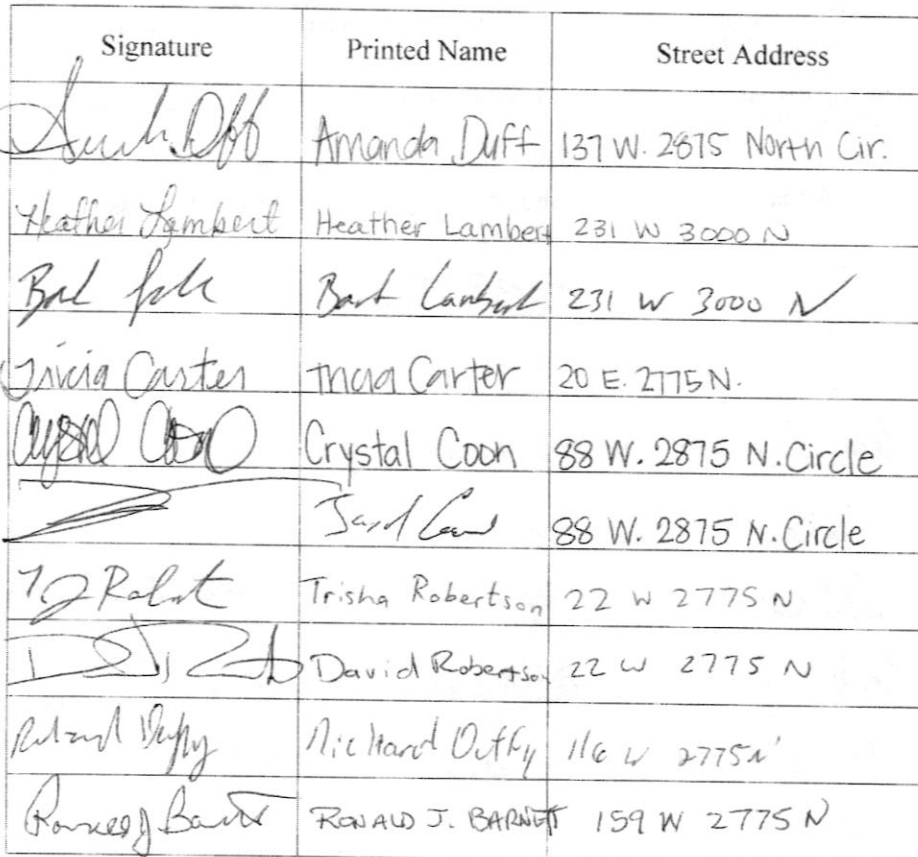 Signature Printed Name Street Address
Amanda Duff 137 W. 2875 North Cir.
Heather Lambert Heather Lambert 231 W 3000 N
Bart Lambert 231 W 3000 N
Tricia Carter Tricia Carter 20 E. 2775 N.
Crystal Coon Crystal Coon 88 W. 2875 N. Circle
88 W. 2875 N. Circle
Trisha Robertson 22 W 2775 N
David Robertson 22 W 2775 N
Richard Duffy Richard Duffy 116 W 2775 N
Ronald J Barnett RONALD J. BARNETT 159 W 2775 N